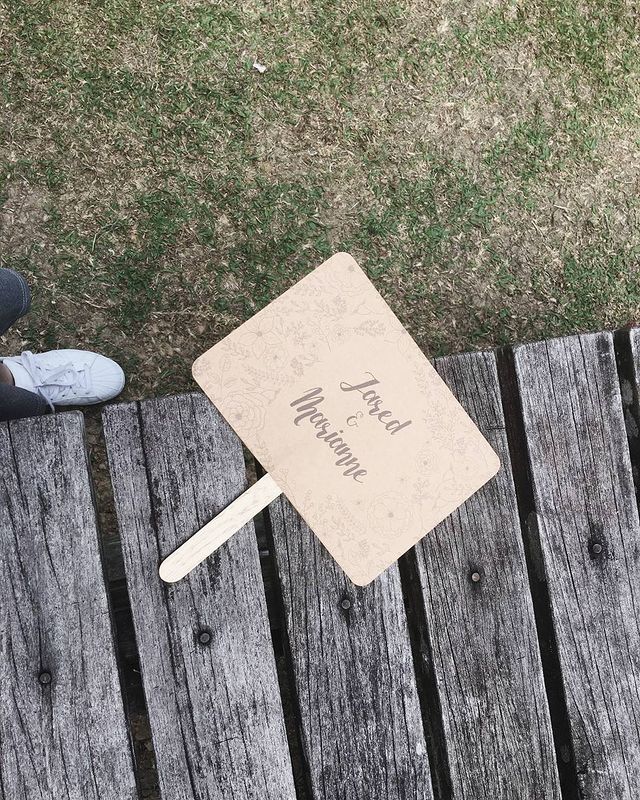 Jared
&
Marianne